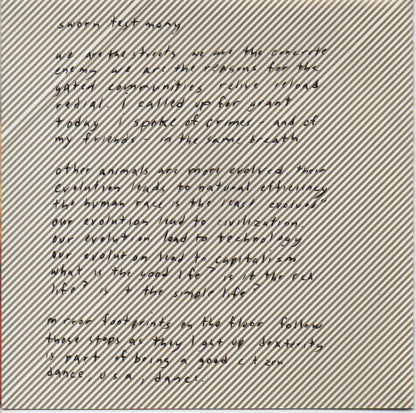 sworn testimony
we are the streets we are the concrete
enemy we are the reasons for the
gated communities relive reload
redial. I called up for grant
today I spoke of crimes - and of
my friends - in the same breath
other animals are more evolved their
evolution leads to natural efficiency
the human race is the least evolved"
our evolution lead to civilization.
our evolution lead to technology
our evolution lead to capitalism
what is the good life? is it the rich
life? is it the simple life?
mirror footprints on the floor follow
these steps as they light up dexterity
is part of being a good citizen
dance, u.s.a, dance.